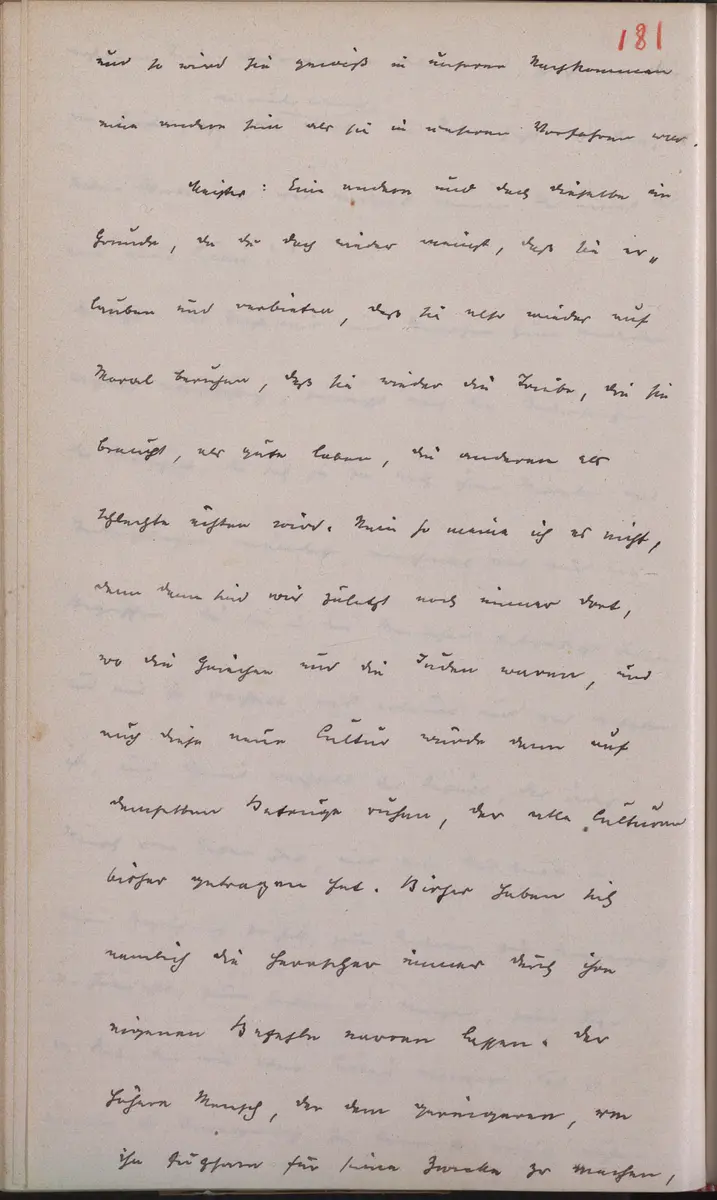 181
und so wird sie gewiß in unseren Nachkommen
eine andere sein als sie in unseren Vorfahren war.
Meister: Eine andere und doch dieselbe im
Grunde, da du doch wieder meinst, daß sie er„
lauben und verbieten, daß sie also wieder auf
Moral beruhen, daß sie wieder die Triebe, die sie
braucht, als gute loben, die anderen als
schlechte ächten wird. Nein so meine ich es nicht,
denn dann sind wir zuletzt noch immer dort,
wo die Griechen und die Juden waren, und
auch diese neue Cultur würde dann auf
demselben Betruge ruhen, der alle Culturen
bisher getragen hat. Bisher haben sich
nemlich die Herrscher immer durch ihre
eigenen Befehle narren lassen. Der
höhere Mensch, der dem geringeren, um
ihn fügsam für seine Zwecke zu machen,